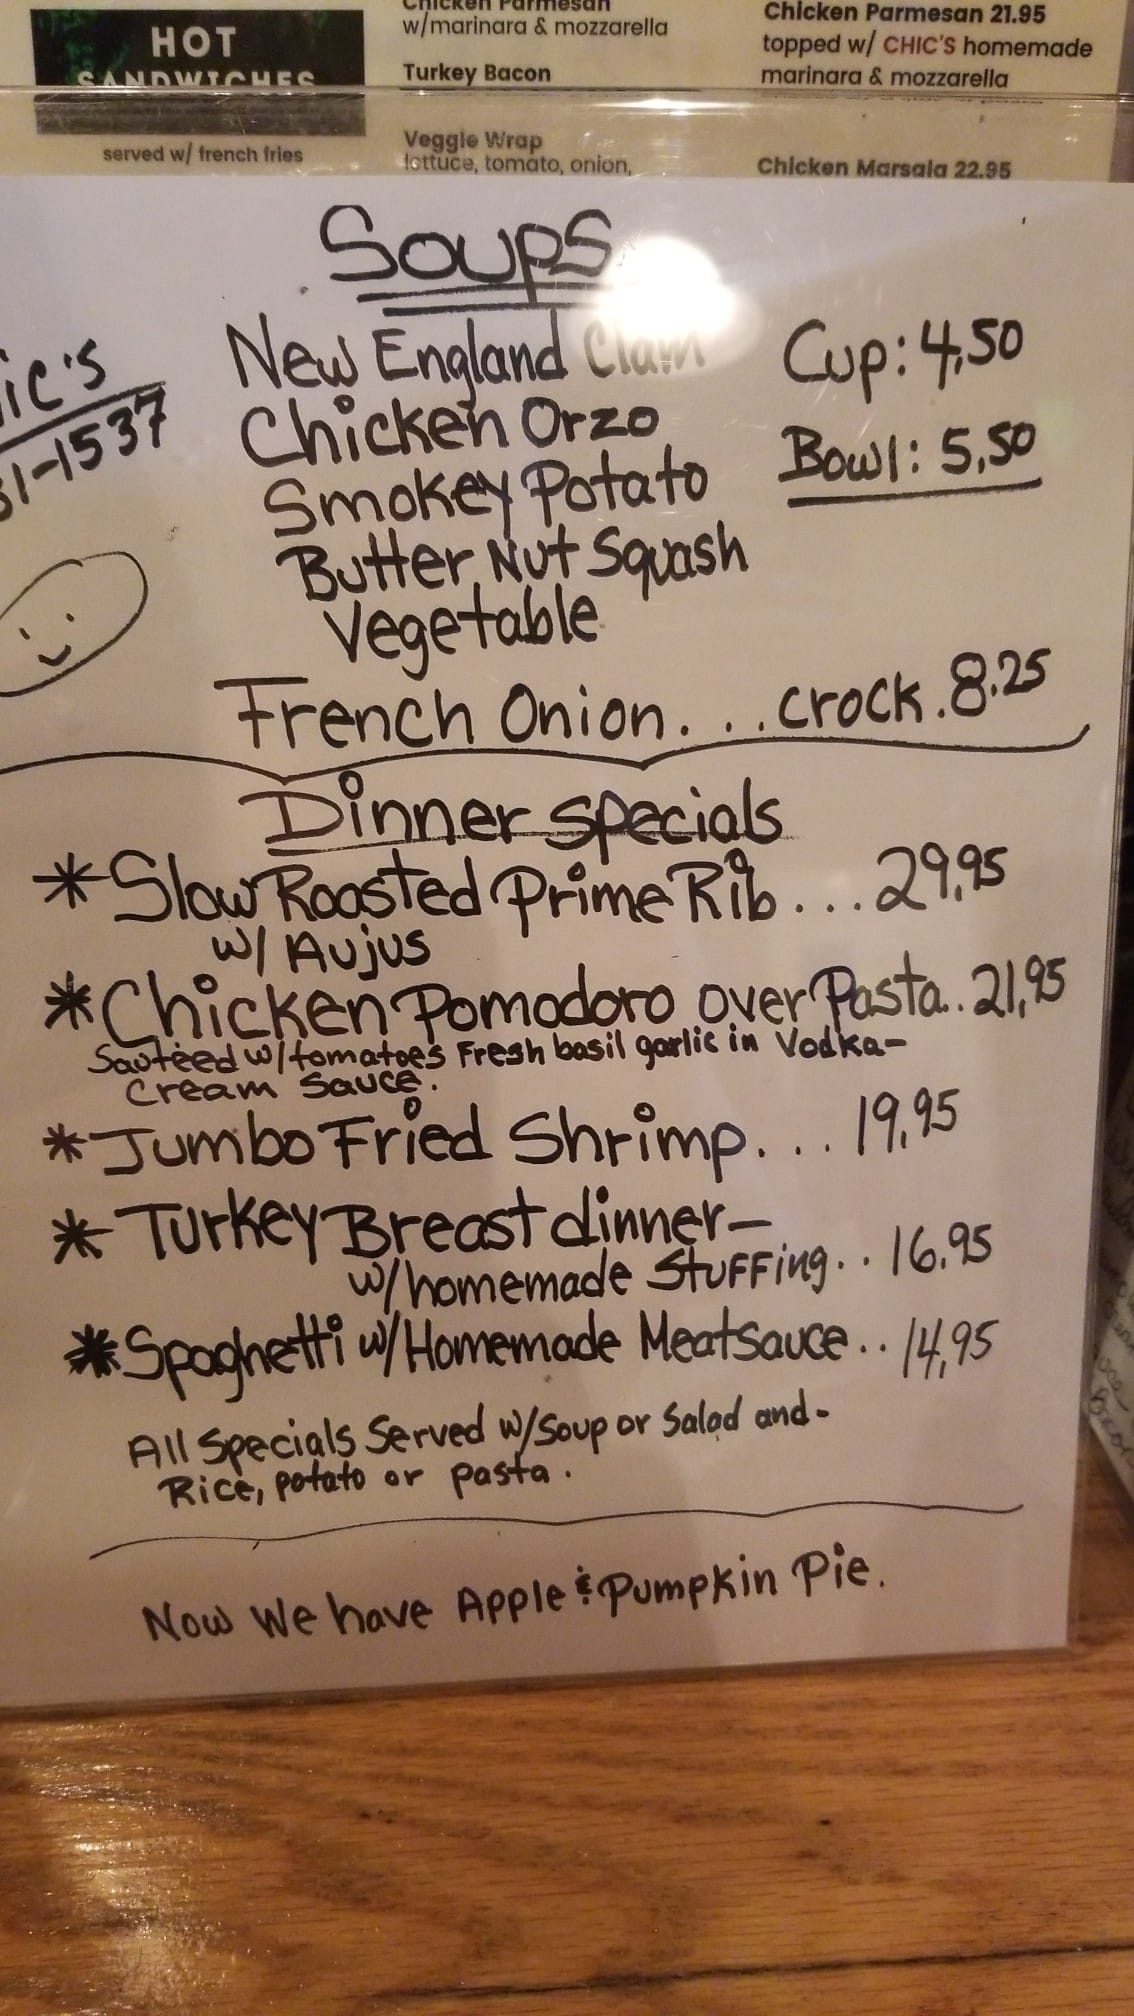 HOT
SANDWICHES
served w/ french fries
Chicken Parmesan
w/marinara & mozzarella
Turkey Bacon
Veggie Wrap
lettuce, tomato, onion,
Chicken Parmesan 21.95
topped w/ CHIC'S homemade
marinara & mozzarella
Chicken Marsala 22.95
Soups
ic's
31-1537
New England Clam
Chicken Orzo
Smokey Potato
Butter Nut Squash
Vegetable
Cup: 4.50
Bowl: 5.50
French Onion. . . . crock. 8.25
Dinner specials
* Slow Roasted Prime Rib . . . 29.95
w/ Aujus
* Chicken Pomodoro over Pasta.. 21.95
Sauteed w/tomatoes Fresh basil garlic in Vodka-
Cream Sauce.
* Jumbo Fried Shrimp. . . . 19.95
* Turkey Breast dinner-
w/homemade Stuffing. . . 16.95
* Spaghetti w/Homemade Meatsauce. . . 14.95
All Specials Served w/Soup or Salad and-
Rice, potato or pasta.
Now We have Apple & Pumpkin Pie.